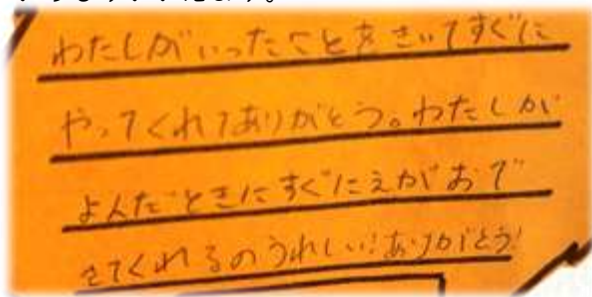 わたしがいったことをきいてすぐに
やってくれてありがとう。わたしが
よんだときにすぐにえがおで
きてくれるのうれしい!ありがとう!